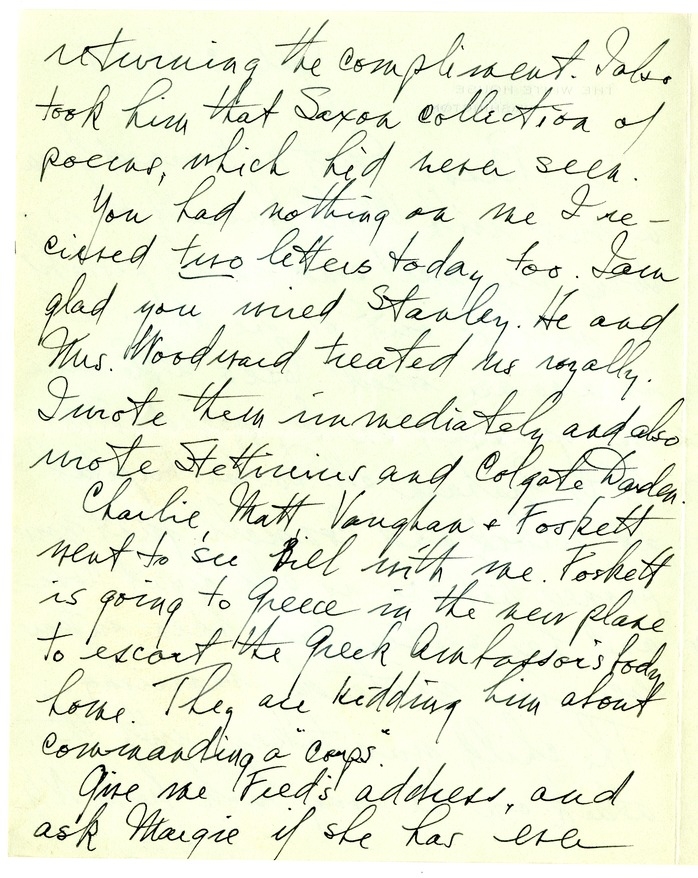 returning the compliment. I also
took him that Saxon collection of
poems, which he'd never seen.
You had nothing on me I re-
cieved two letters today too. I am
glad you wired Stanley. He and
Mrs. Woodward treated us royally.
I wrote them immediately and also
wrote Stettinius and Colgate Darden.
Charlie, Matt, Vaughan & Foskett
went to see Bill with me. Foskett
is going to Greece in the new plane
to escort the Greek Ambassor's body
home. They are kidding him about
commanding a "corps".
Give me Fred's address, and
ask Margie if she has ever